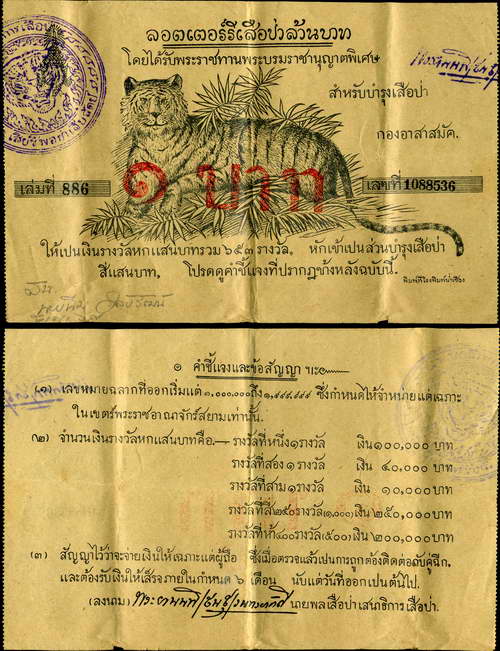 ลอตเตอร์รีเสือป่าล้านบาท
โดยได้รับพระราชทานพระบรมราชานุญาตพิเศษ
สำหรับบำรุงเสือป่า
กองอาสาสมัค.
๑ บาท
เล่มที่ 886
เลขที่ 1088536
ให้เปนเงินรางวัลหกแสนบาทรวม ๖๕๓ รางวัล, หักเข้าเปนส่วนบำรุงเสือป่า
สี่แสนบาท, โปรดดูคำชี้แจงที่ปรากฏข้างหลังฉบับนี้.
๑ คำชี้แจงและข้อสัญญา
(๑) เลขหมายฉลากที่ออกเริ่มแต่ ๑,๐๐๐,๐๐๐ ถึง ๑,๙๙๙,๙๙๙ ซึ่งกำหนดให้จำหน่ายแต่เฉภาะ
ในเขตร์พระราชอาณาจักร์สยามเท่านั้น.
(๒) จำนวนเงินรางวัลหกแสนบาทคือ.— รางวัลที่หนึ่ง ๑ รางวัล เงิน ๑๐๐,๐๐๐ บาท
รางวัลที่สอง ๑ รางวัล เงิน ๔๐,๐๐๐ บาท
รางวัลที่สาม ๑ รางวัล เงิน ๑๐,๐๐๐ บาท
รางวัลที่สี่ ๒๕๐ รางวัล (๑,๐๐๐) เงิน ๒๕๐,๐๐๐ บาท
รางวัลที่ห้า ๔๐๐ รางวัล (๕๐๐) เงิน ๒๐๐,๐๐๐ บาท
(๓) สัญญาไว้ว่าจะจ่ายเงินให้เฉภาะแต่ผู้ถือ ซึ่งเมื่อตรวจแล้วเปนการถูกต้องติดต่อกับคู่ฉีก.
และต้องรับเงินให้เสร็จภายในกำหนด ๖ เดือน นับแต่วันที่ออกเปนต้นไป.
(ลงนาม) นายพลเสือป่าเสนาธิการเสือป่า.